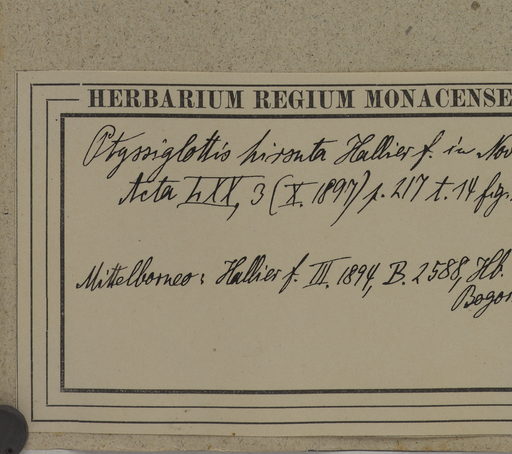 HERBARIUM REGIUM MONACENSE
Ptyssiglottis hirsuta Hallier f. in Nov
Acta LXX, 3 (X. 1897) p. 217 t. 14 fig.
Mittelborneo: Hallier f. III. 1894, B. 2588, Hb.
Bogor